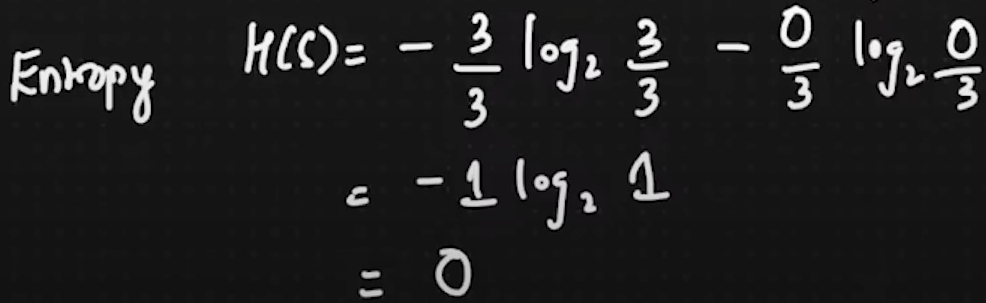 Entropy H(S) = - 3/3 log₂ 3/3 - 0/3 log₂ 0/3
= -1 log₂ 1
= 0